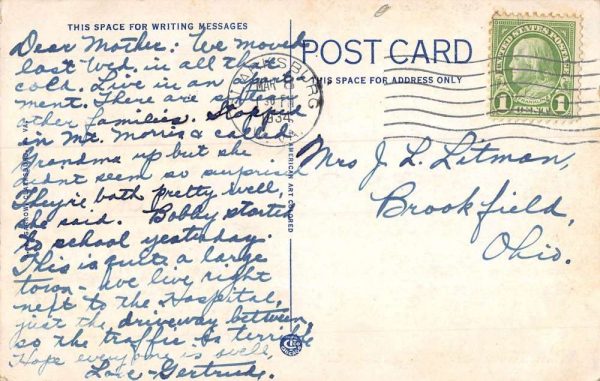 THIS SPACE FOR WRITING MESSAGES
Dear Mother: We moved
last Wed. in all that
cold. Live in an apart-
ment. There are
other families. Stopped
in Mt. Morris & called
Grandma up but she
didnt seem so surprised
They're both pretty well,
she said. Bobby started
to school yesterday.
This is quite a large
town - we live right
next to the Hospital,
just the driveway between,
so the traffic is terrible
Hope everyone is well,
Love - Gertrude.
POST CARD
THIS SPACE FOR ADDRESS ONLY
MAR 8
1934
UNITED STATES POSTAGE
FRANKLIN
1 1
Mrs J. L. Litman,
Brookfield,
Ohio.
AMERICAN ART COLORED